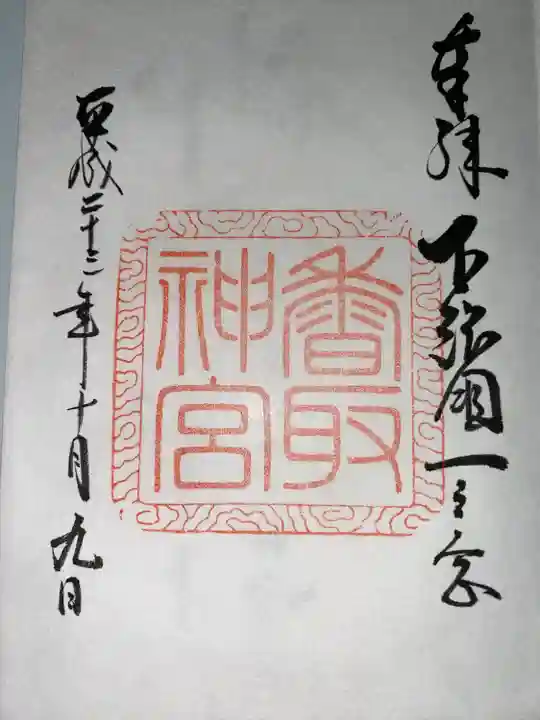 奉拝 下総國一之宮
香取
神宮
平成二十三年十月九日